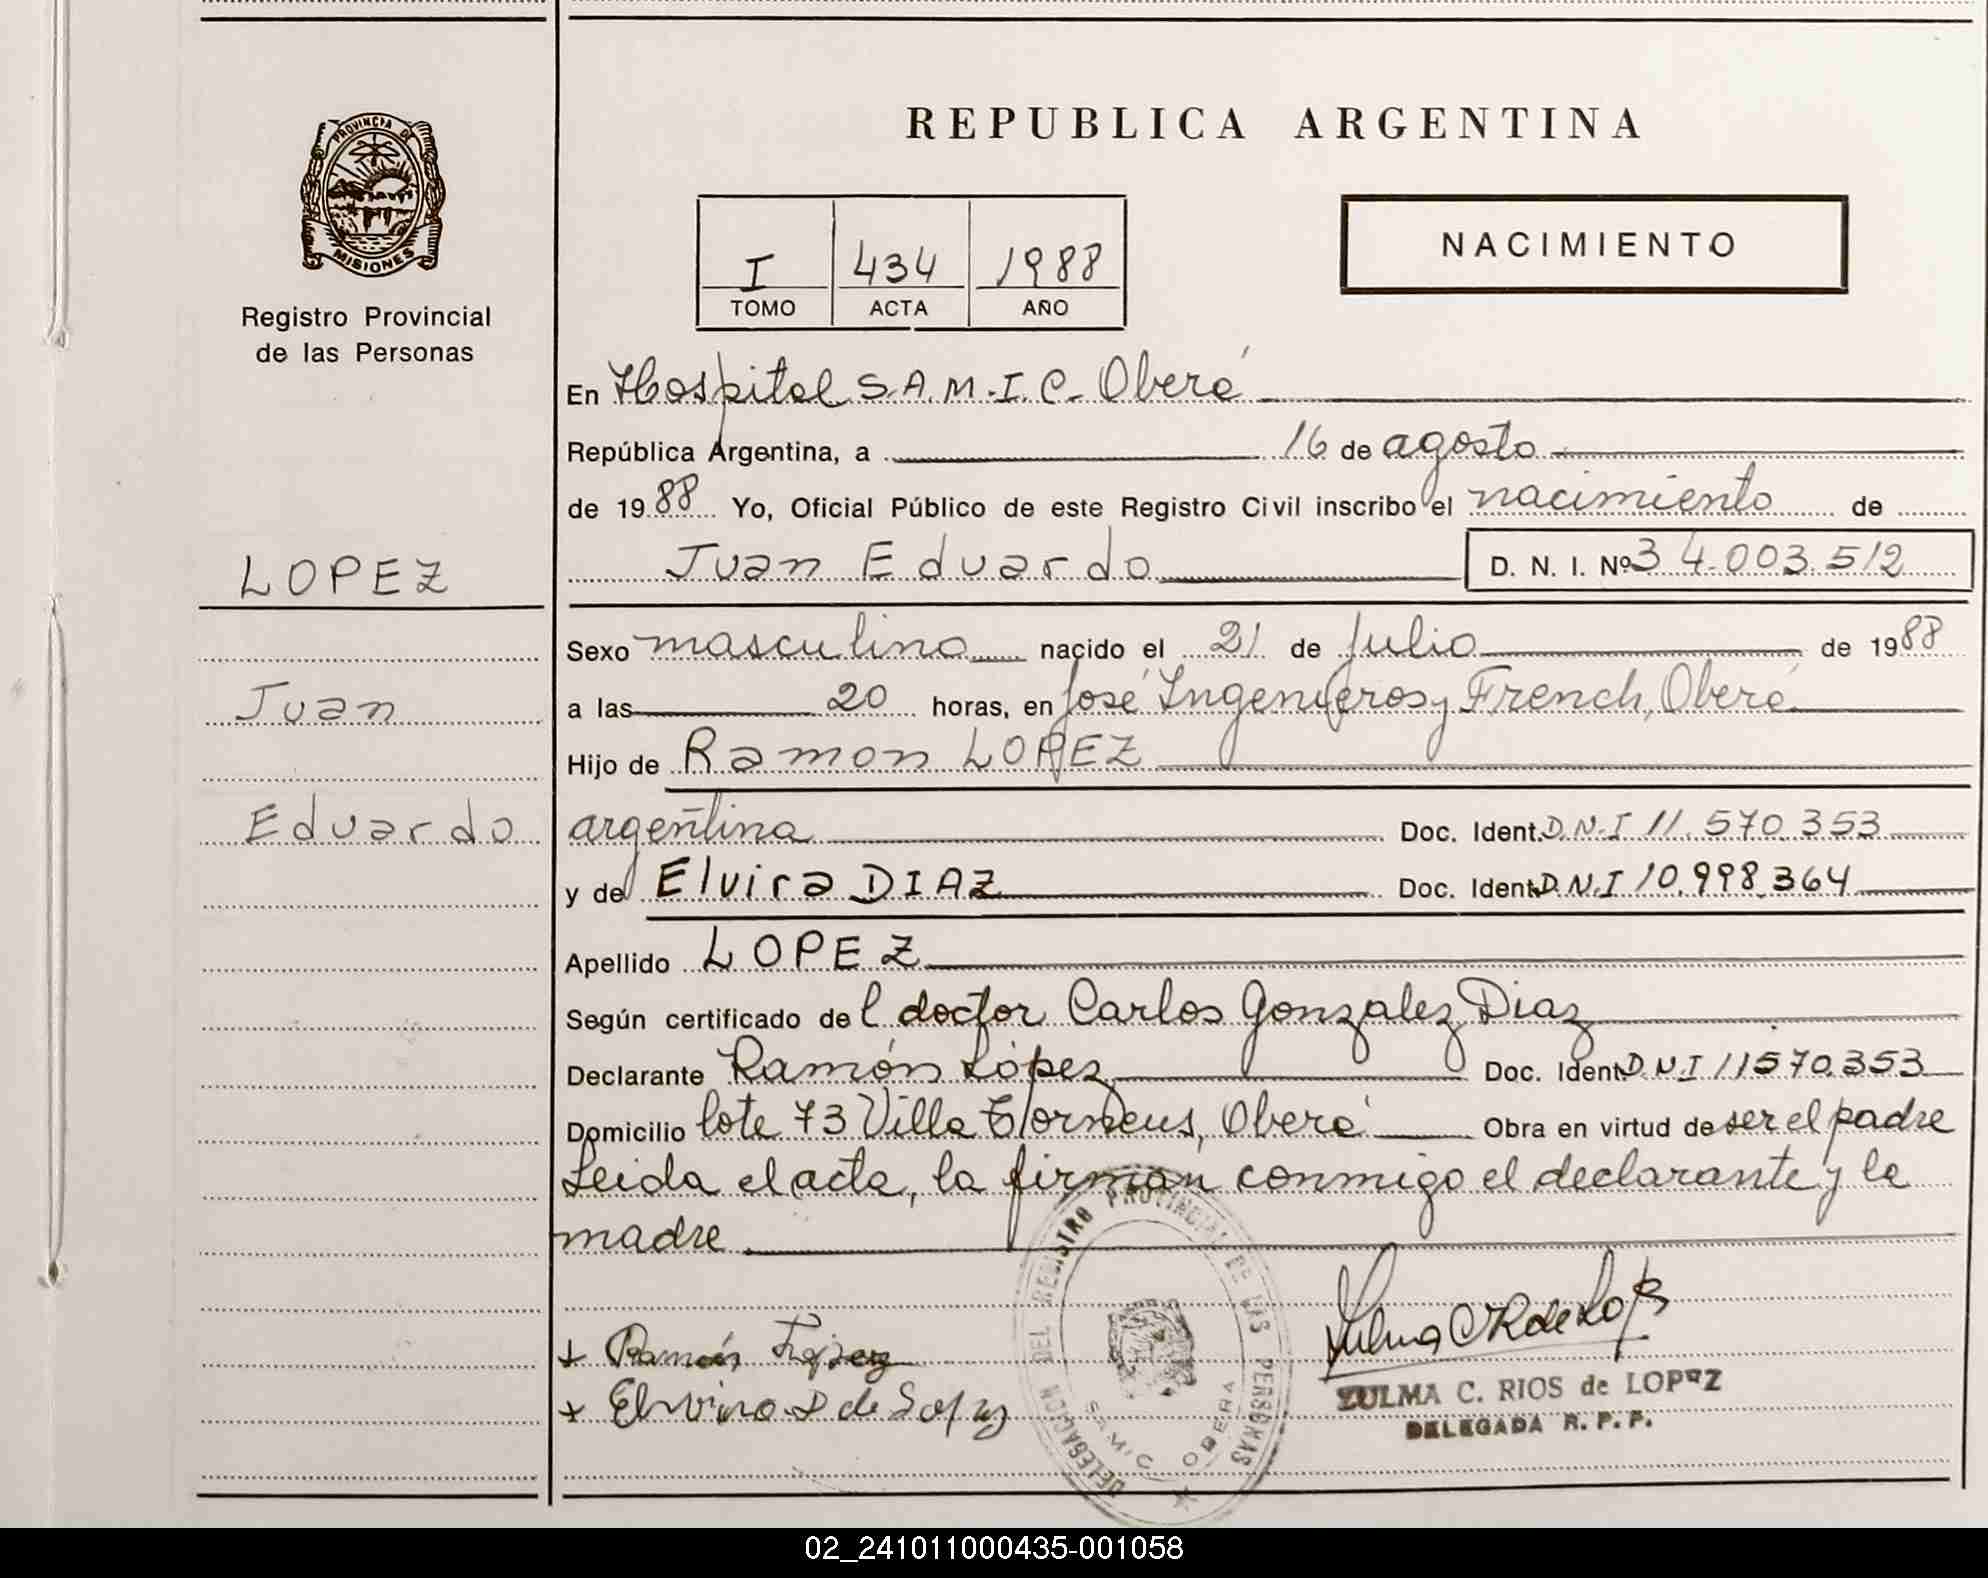 PROVINCIA DE
MISIONES
Registro Provincial
de las Personas
REPUBLICA ARGENTINA
NACIMIENTO
I 434 1988
TOMO ACTA AÑO
En Hospital S.A.M.I.C. Oberá
República Argentina, a 16 de agosto
de 1988 Yo, Oficial Público de este Registro Civil inscribo el nacimiento de
LOPEZ
Juan Eduardo D. N. I. Nº 34.003.512
Sexo masculino nacido el 21 de julio de 1988
Juan
a las 20 horas, en José Ingenieros y French, Oberá
Hijo de Ramon LOPEZ
Eduardo
argentina Doc. Ident. D.N.I 11.570.353
y de Elvira DIAZ Doc. Ident. D.N.I 10.998.364
Apellido LOPEZ
Según certificado del doctor Carlos Gonzalez Diaz
Declarante Ramón López Doc. Ident. D.N.I 11570.353
Domicilio lote 73 Villa Obera Obra en virtud de ser el padre
Leida el acta, la firman conmigo el declarante y la
madre
DELEGACION DEL REGISTRO PROVINCIAL DE LAS PERSONAS
S.A.M.I.C. OBERA
+ Ramón López
+ Elvira D de Lopez
ZULMA C. RIOS de LOPEZ
DELEGADA R. P. P.
02_241011000435-001058